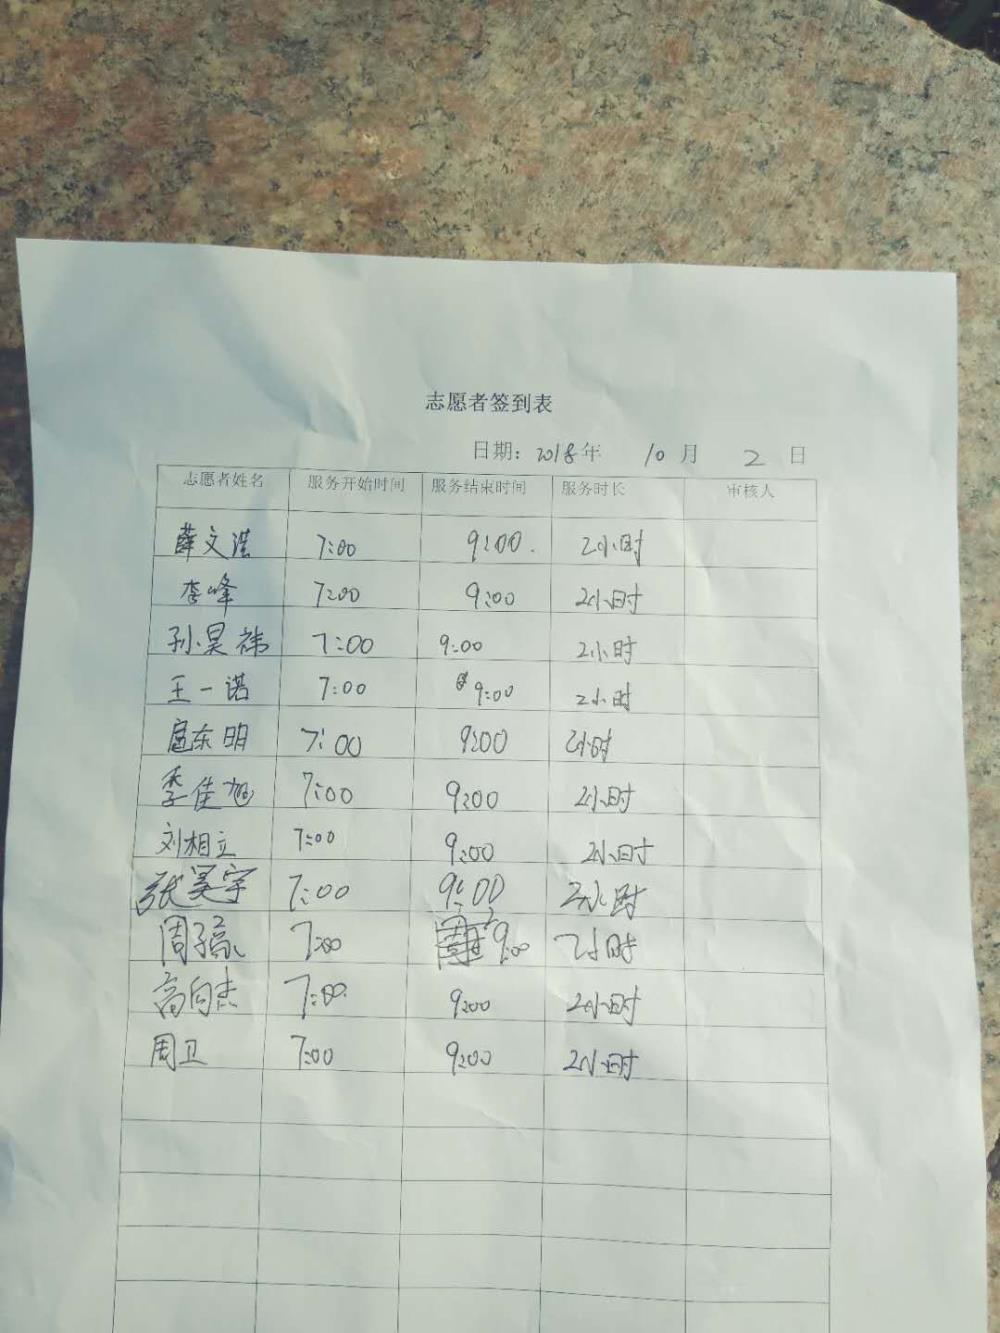 志愿者签到表
日期: 2018年 10月 2日
志愿者姓名 服务开始时间 服务结束时间 服务时长 审核人
薛文浩 7:00 9:00. 2小时
李峰 7:00 9:00 2小时
孙昊祎 7:00 9:00 2小时
王一诺 7:00 9:00 2小时
扈东明 7:00 9:00 2小时
季佳旭 7:00 9:00 2小时
刘相立 7:00 9:00 2小时
张昊宇 7:00 9:00 2小时
周 7:00 9:00 2小时
高向杰 7:00 9:00 2小时
周卫 7:00 9:00 2小时